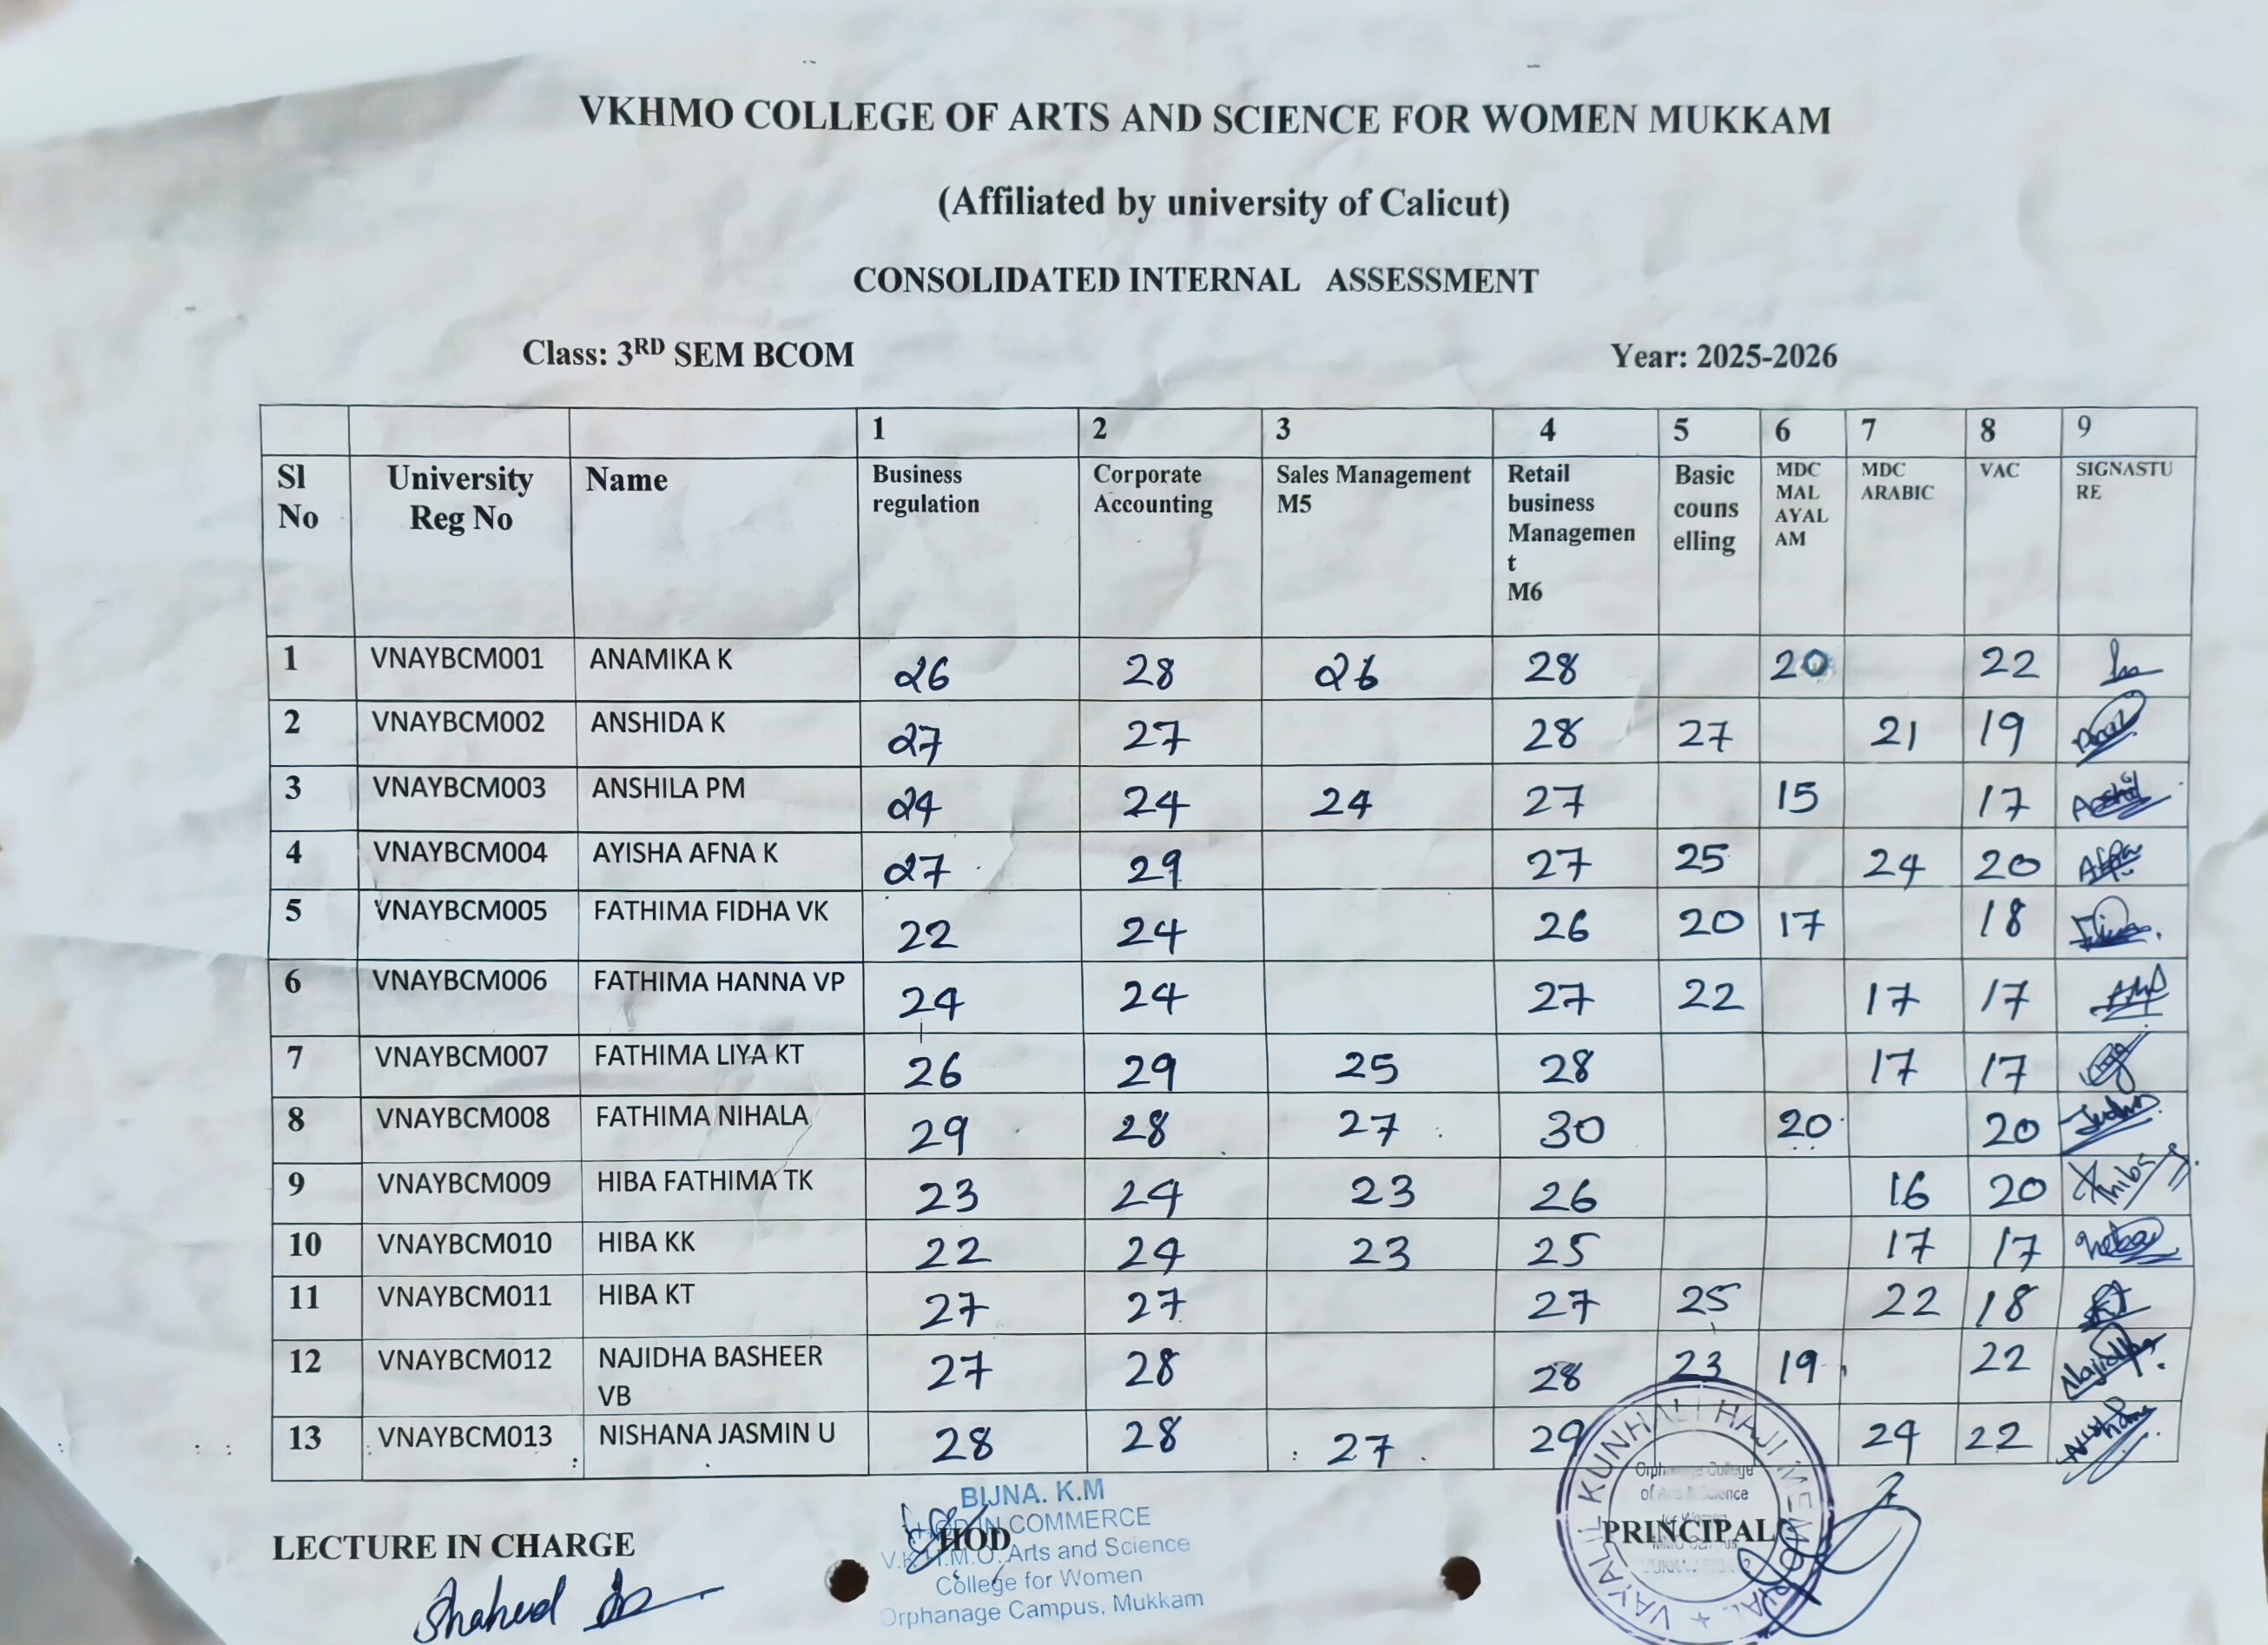 VKHMO COLLEGE OF ARTS AND SCIENCE FOR WOMEN MUKKAM
(Affiliated by university of Calicut)
CONSOLIDATED INTERNAL ASSESSMENT
Class: 3RD SEM BCOM Year: 2025-2026
1 2 3 4 5 6 7 8 9
Sl No University Reg No Name Business regulation Corporate Accounting Sales Management M5 Retail business Managemen t M6 Basic couns elling MDC MAL AYAL AM MDC ARABIC VAC SIGNASTU RE
1 VNAYBCM001 ANAMIKA K 26 28 26 28 20 22
2 VNAYBCM002 ANSHIDA K 27 27 28 27 21 19
3 VNAYBCM003 ANSHILA PM 24 24 24 27 15 17
4 VNAYBCM004 AYISHA AFNA K 27 29 27 25 24 20
5 VNAYBCM005 FATHIMA FIDHA VK 22 24 26 20 17 18
6 VNAYBCM006 FATHIMA HANNA VP 24 24 27 22 17 17
7 VNAYBCM007 FATHIMA LIYA KT 26 29 25 28 17 17
8 VNAYBCM008 FATHIMA NIHALA 29 28 27 30 20 20
9 VNAYBCM009 HIBA FATHIMA TK 23 24 23 26 16 20
10 VNAYBCM010 HIBA KK 22 24 23 25 17 17
11 VNAYBCM011 HIBA KT 27 27 27 25 22 18
12 VNAYBCM012 NAJIDHA BASHEER VB 27 28 28 23 19 22
13 VNAYBCM013 NISHANA JASMIN U 28 28 27 29 24 22
LECTURE IN CHARGE HOD PRINCIPAL
BIJNA. K.M
HOD IN COMMERCE
V.K.H.M.O. Arts and Science
College for Women
Orphanage Campus, Mukkam
VAYALIL KUNHALI HAJI MEMORIAL
Orphanage College
of Arts & Science